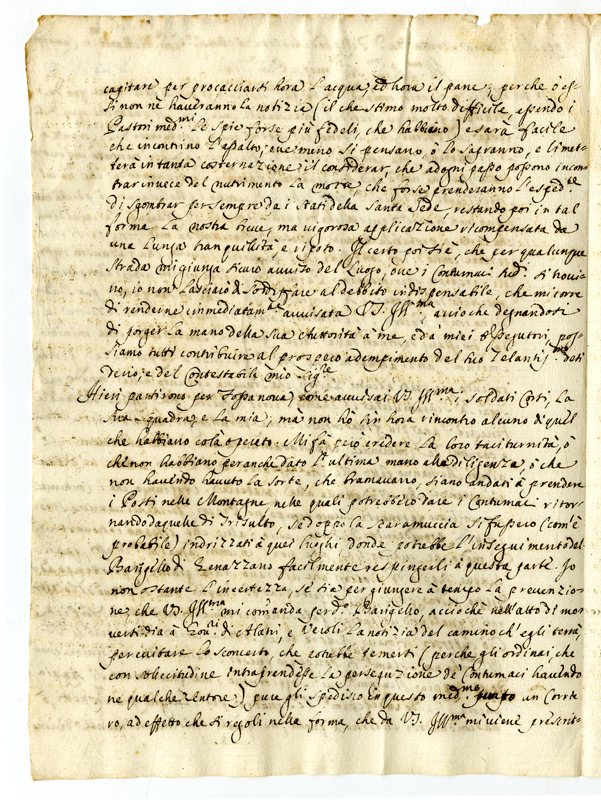 capitare per procacciarsi hora l'acqua, ed hora il pane; perche ò es-
si non ne haveranno la notizia (il che stimo molto difficile essendo i
Pastori med.mi le spie forse più fedeli, che habbiano) e sarà facile
che incontrino l'assalto, ove meno si pensano ò lo sapranno, e li met-
terà in tanta costernazione il considerar, che ad ogni passo possono incon-
trar invece del nutrimento la morte, che forse prenderanno l'esped.te
di sgombrar per sempre da i Stati della Santa Sede, restando poi in tal
forma la nostra breve, ma vigorosa applicazione ricompensata da
una lunga tranquillità, e riposo. Il certo poi si è, che per qualunque
strada mi giunga sicuro avviso del luogo, ove i Contumaci sud.i si trovi-
no, io non lascierò di sodisfare al debbito indispensabile, che mi corre
di renderne immediatam.te avvisata VS. Ill.ma, acciò che degnandosi
di porger la mano della sua auttorità à me, ed à miei essegutori, pos-
siamo tutti contribuire al prospero adempimento del suo zelantis.mo
desiderio, e del Contestabile mio Sig.re
Hieri partirono per Fossanova, come avvisai VS. Ill.ma, i soldati Corsi, la
sua squadra, e la mia; mà non hò sin hora rincontro alcuno di quel
che habbiano colà operato. Mi fà però credere la loro taciturnità, ò
che non habbiano per anche dato l'ultima mano alle diligenze, ò che
non havendo havuto la sorte, che bramavano, siano andati à prendere
i Posti nelle Montagne, nelle quali potrebbero dare i Contumaci ritor-
nando da quelle di Trisulto, se doppo la scaramuccia si fussero (com'è
probabile) indrizzati à quei luoghi, donde potrebbe l'inseguimento del
Bargello di Genazzano facilmente respingerli à questa parte. Io
non ostante l'incertezza, se sia per giungere à tempo la prevenzio-
ne, che VS. Ill.ma mi comanda per d.o Bargello, acciochè nell'atto di mo-
versi dia à di Alatri, e Veroli la notizia del camino ch'egli terrà,
per evitare lo sconcerto, che potrebbe temersi (perche gli ordinai, che
con sollecitudine intraprendesse la persequzione de' Contumaci havendo-
ne qualche sentore) pure gli spedisco in questo med.mo punto un Corrie-
ro, ad effetto che si regoli nella forma, che da VS. Ill.ma mi viene prescrit-